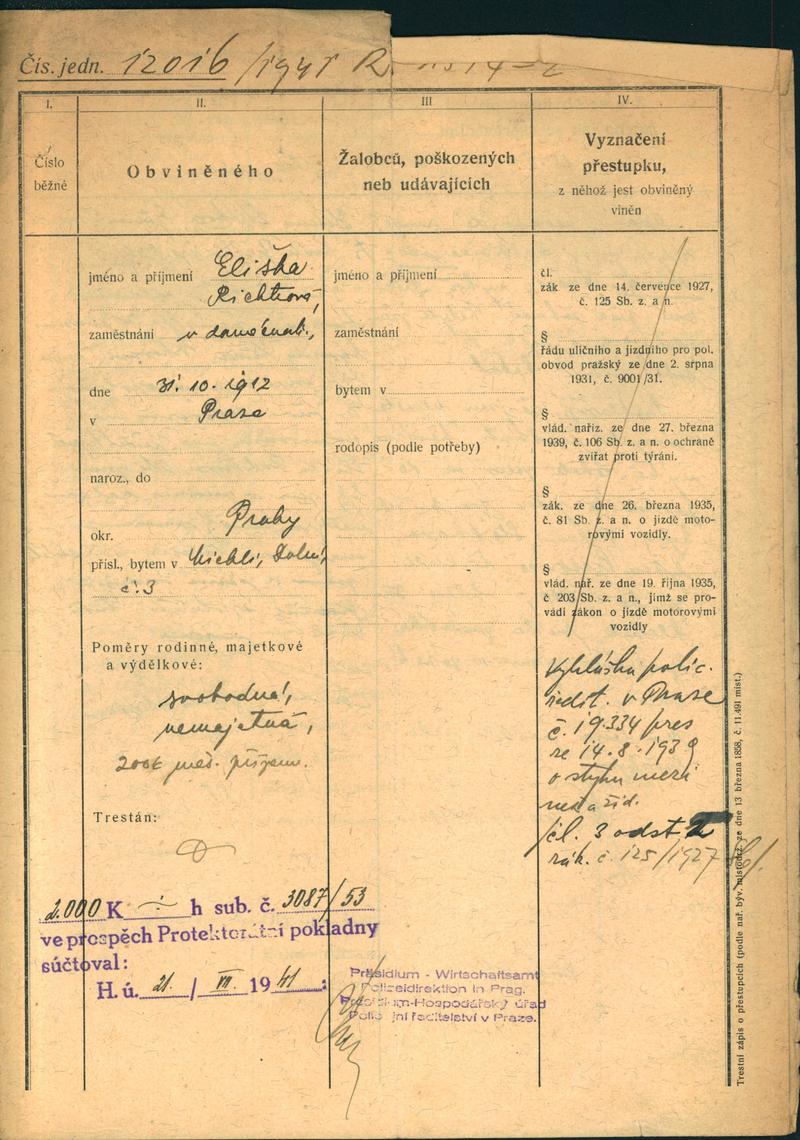 Čís. jedn. 12016/1941 R.
I.
II.
III
IV.
Číslo
běžné
Obviněného
Žalobců, poškozených
neb udávajících
Vyznačení
přestupku,
z něhož jest obviněný
viněn
jméno a příjmení Eliška
Richtrová,
zaměstnání v domácnosti,
dne 31. 10. 1912
v Praze
naroz., do
okr. Prahy
přísl., bytem v Michli, Dolní,
č. 3
Poměry rodinné, majetkové
a výdělkové:
svobodná,
nemajetná,
Trestán:
jméno a příjmení
zaměstnání
bytem v
rodopis (podle potřeby)
čl.
zák ze dne 14. července 1927,
č. 125 Sb. z. a n.
§
řádu uličního a jízdního pro pol.
obvod pražský ze dne 2. srpna
1931, č. 9001/31.
§
vlád. nařiz. ze dne 27. března
1939, č. 106 Sb. z. a n. o ochraně
zvířat proti týrání.
§
zák. ze dne 26. března 1935,
č. 81 Sb. z. a n. o jízdě moto-
rovými vozidly.
§
vlád. nař. ze dne 19. října 1935,
č 203 Sb. z. a n., jímž se pro-
vádí zákon o jízdě motorovými
vozidly
Vyhláška polic.
ředit. v Praze
č. 19.334 pres
ze 14. 8. 1939
o styku mezi
než a žid.
čl. 3 odst. 2
zák. č. 125/1927 Sb.
2.000 K h sub. č. 3087/53
ve prospěch Protektorátní pokladny
súčtoval:
H. ú. 21. / VII. 1941 :
Präsidium - Wirtschaftsamt
Polizeidirektion in Prag.
Presidium-Hospodářský úřad
Policejní ředitelství v Praze.
Trestní zápis o přestupcích (podle nař. býv. místodrž. ze dne 13 března 1858, č. 11.491 míst.)